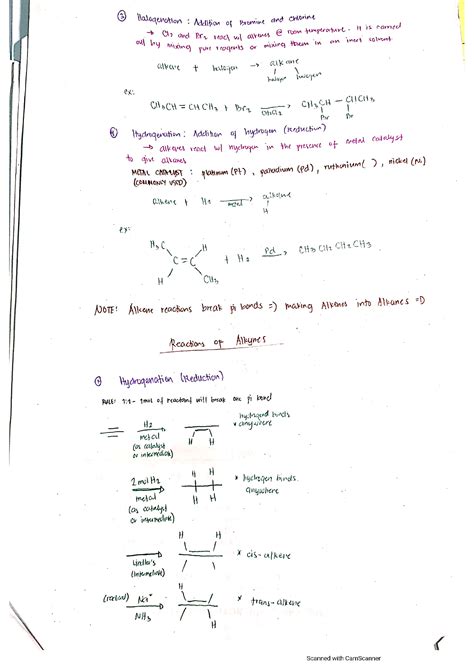 ② Halogenation : Addition of Bromine and Chlorine
→ Cl₂ and Br₂ react w/ alkenes @ room temperature. It is carried
out by mixing pure reagents or mixing them in an inert solvent
alkene + halogen → alkane
halogen halogen
ex:
CH₃CH = CHCH₃ + Br₂ → CH₃CH – CHCH₃
CH₂Cl₂ Br Br
Hydrogenation : Addition of Hydrogen (reduction)
→ alkenes react w/ hydrogen in the presence of metal catalyst
to give alkanes
METAL CATALYST : platinum (Pt) , palladium (Pd) , ruthenium ( ) , nickel (Ni)
(COMMONLY USED)
alkene + H₂ → alkane
metal H
ex:
H₃C H
C = C + H₂ Pd → CH₃CH₂CH₂CH₃
H CH₃
NOTE: Alkene reactions break pi bonds =) making Alkenes into Alkanes =D
Reactions of Alkynes
① Hydrogenation (Reduction)
RULE: 1:1 - 1mol of reactant will break one pi bond
H₂ hydrogen binds
metal * anywhere
(as catalyst H H
or intermediate)
H H
2 mol H₂ * hydrogen binds
metal anywhere
(as catalyst H H
or intermediate)
H H
* cis-alkene
(intermediate)
H
Na⁺ * trans-alkene
NH₃ H
Scanned with CamScanner